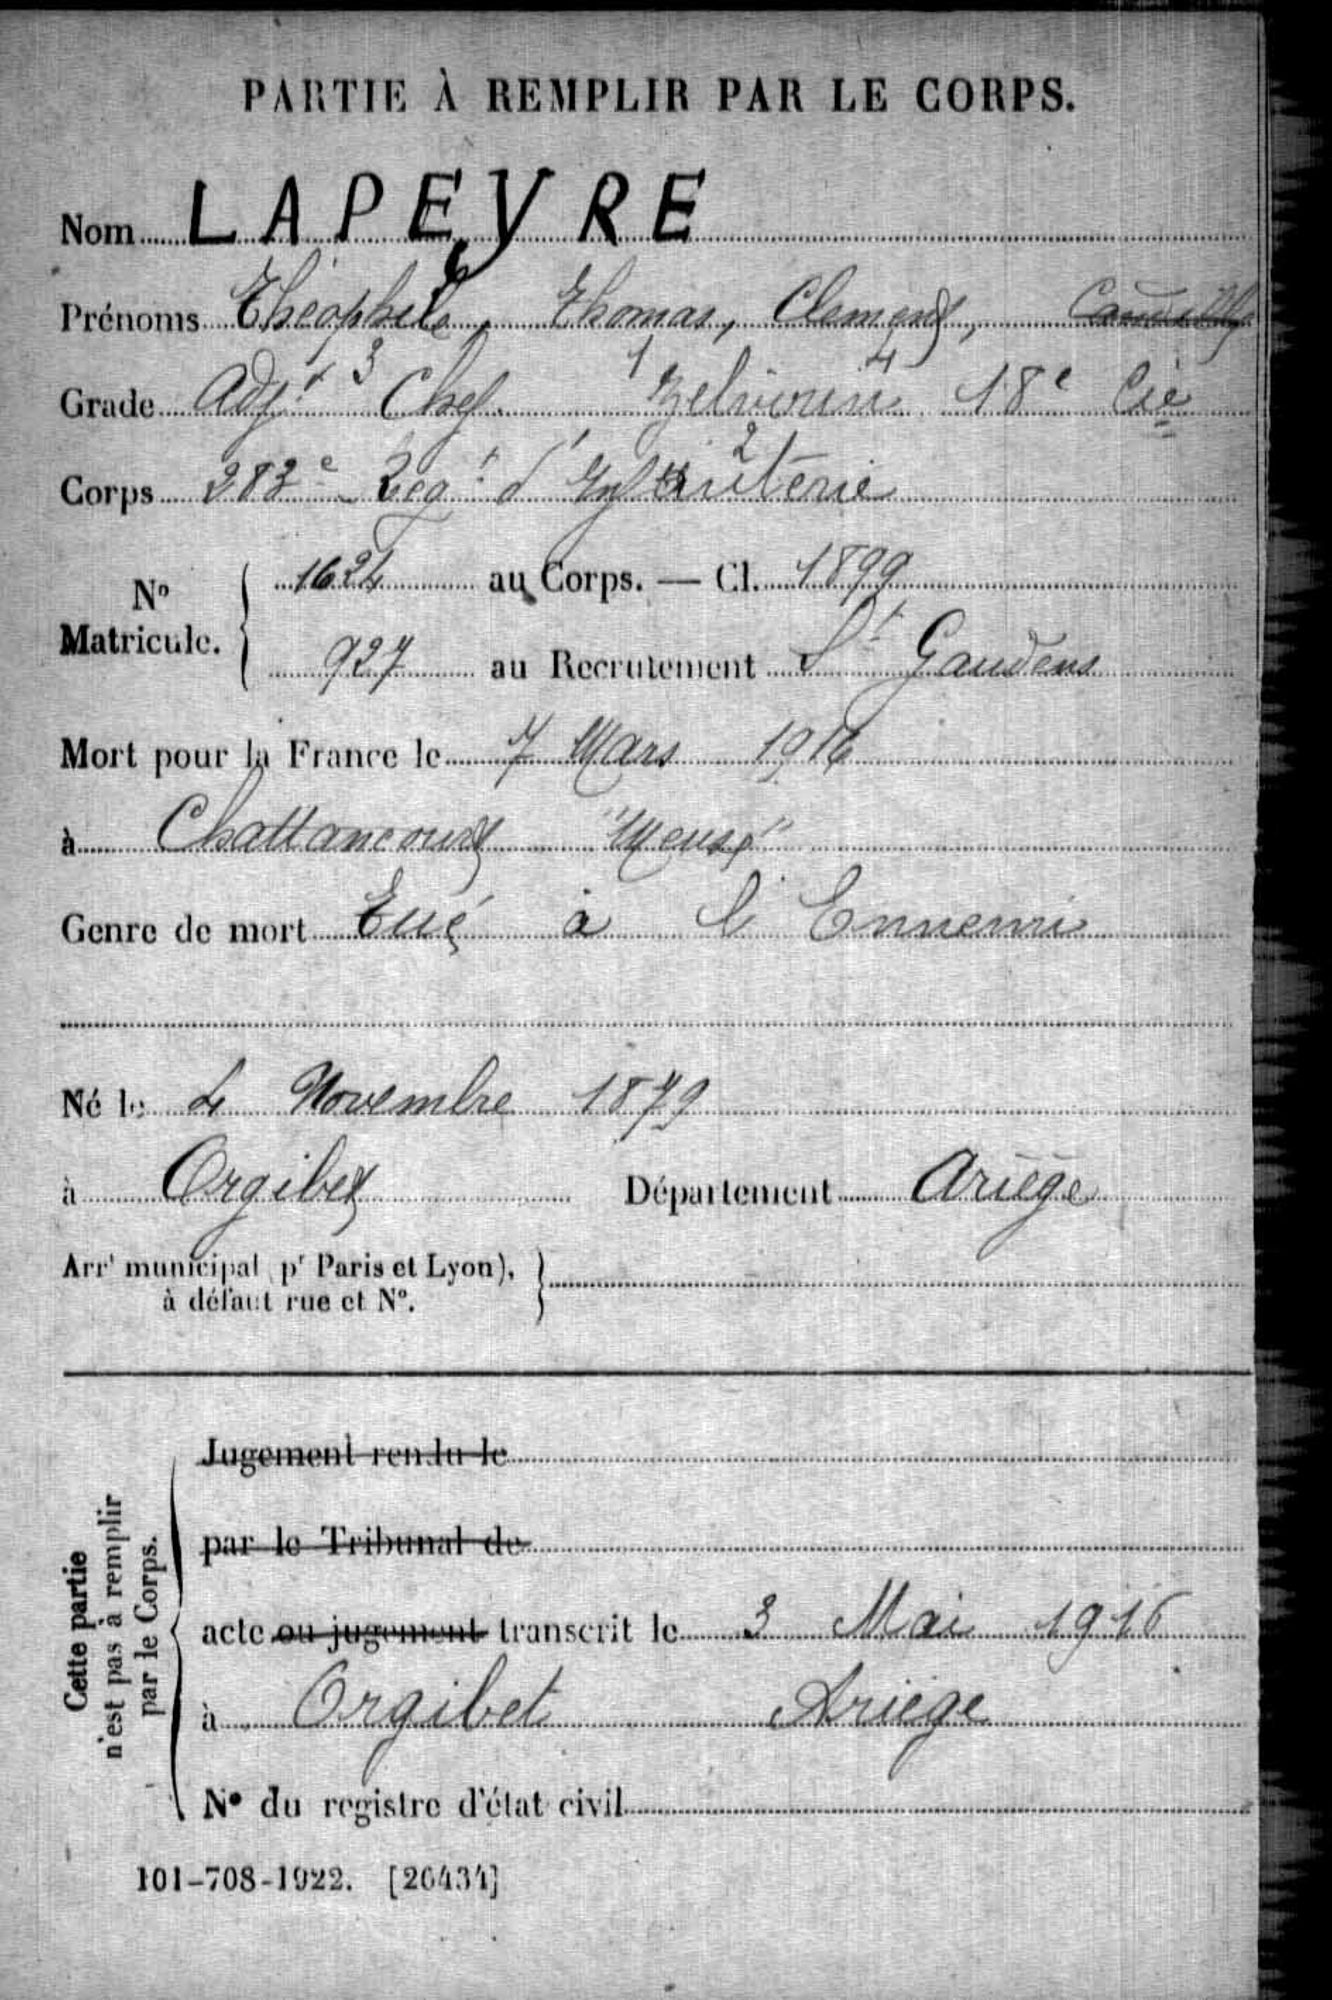 PARTIE À REMPLIR PAR LE CORPS.
Nom LAPEYRE
Prénoms Théophile, Thomas, Clement,
Grade Adjt Chef 18e Cie
3 1 4
Corps 283e Regt d'Infanterie
2
No Matricule. 1624 au Corps. — Cl. 1899
927 au Recrutement St Gaudens
Mort pour la France le 7 Mars 1916
à Chattancourt "Meuse"
Genre de mort Tué à l'Ennemi
Né le 4 Novembre 1879
à Orgibet Département Ariège
Arrt municipal (pr Paris et Lyon),
à défaut rue et No.
Cette partie
n'est pas à remplir
par le Corps.
Jugement rendu le
par le Tribunal de
acte ou jugement transcrit le 3 Mai 1916
à Orgibet Ariège
No du registre d'état civil
101-708-1922. [26434]